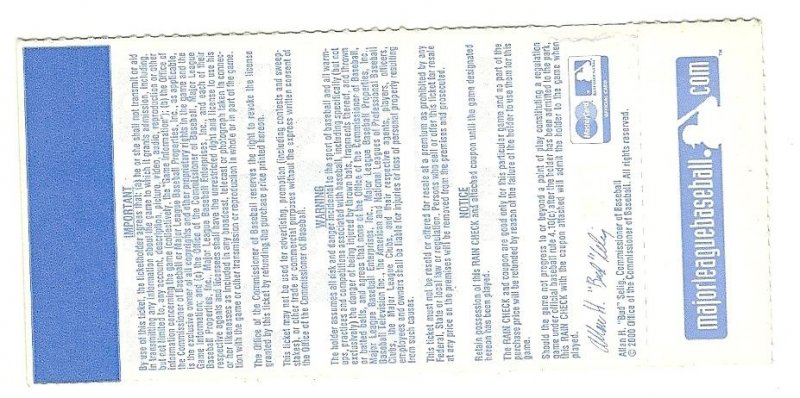 IMPORTANT
By use of this ticket, the ticketholder agrees that: (a) he or she shall not transmit or aid
in transmitting any information about the game to which it grants admission, including,
but not limited to, any account, description, picture, video, audio, reproduction or other
information concerning the game (collectively, the "Game Information"); (b) the Office of
the Commissioner of Baseball or Major League Baseball Properties, Inc., as applicable,
is the exclusive owner of all copyrights and other proprietary rights in the game and the
Game Information; and (c) the Office of the Commissioner of Baseball, Major League
Baseball Properties, Inc., Major League Baseball Enterprises, Inc. and each of their
respective agents and licensees shall have the unrestricted right and license to use his
or her likenesses as included in any broadcast, telecast or photograph taken in connec-
tion with the game or other transmission or reproduction in whole or in part of the game.
The Office of the Commissioner of Baseball reserves the right to revoke the license
granted by this ticket by refunding the purchase price printed hereon.
This ticket may not be used for advertising, promotion (including contests and sweep-
stakes), or other trade or commercial purposes without the express written consent of
the Office of the Commissioner of Baseball.
WARNING
The holder assumes all risk and danger incidental to the sport of baseball and all warm-
ups, practices and competitions associated with baseball, including specifically (but not
exclusively) the danger of being injured by thrown bats, fragments thereof, and thrown
or batted balls, and agrees that none of the Office of the Commissioner of Baseball,
Major League Baseball Enterprises, Inc., Major League Baseball Properties, Inc.,
Baseball Television Inc., the American and National Leagues of Professional Baseball
Clubs, the Major League Clubs, and their respective agents, players, officers,
employees and owners shall be liable for injuries or loss of personal property resulting
from such causes.
This ticket must not be resold or offered for resale at a premium as prohibited by any
Federal, State or local law or regulation. Persons who sell or offer this ticket for resale
at any price on the premises will be removed from the premises and prosecuted.
NOTICE
Retain possession of this RAIN CHECK and attached coupon until the game designated
hereon has been played.
The RAIN CHECK and coupon are good only for this particular game and no part of the
purchase price will be refunded by reason of the failure of the holder to use them for this
game.
Should the game not progress to or beyond a point of play constituting a regulation
game under official baseball rule 4.10(c) after the holder has been admitted to the park,
this RAIN CHECK with the coupon attached will admit the holder to the game when
played.
Allan H. "Bud" Selig
MasterCard
Allan H. "Bud" Selig, Commissioner of Baseball
© 2000 Office of the Commissioner of Baseball. All rights reserved.
majorleaguebaseball.com™